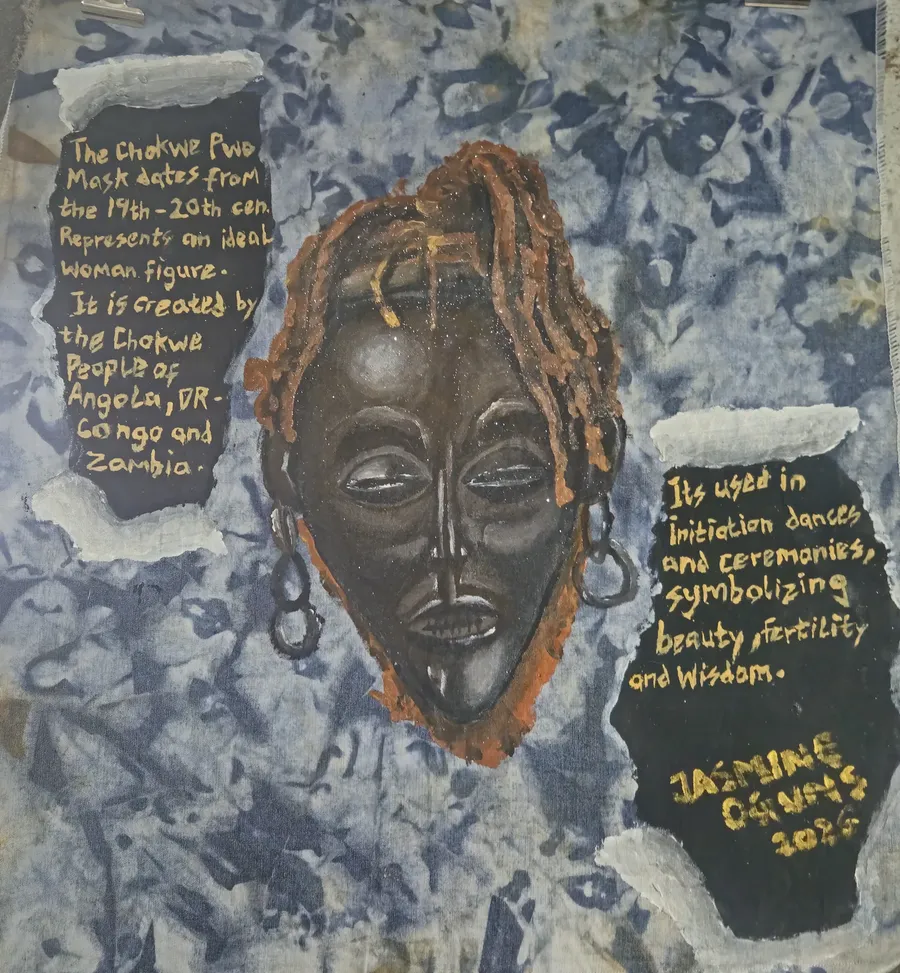 The Chokwe Pwo
Mask dates from
the 19th-20th cen.
Represents an ideal
woman figure.
It is created by
the Chokwe
People of
Angola, DR-
Congo and
Zambia.
Its used in
initiation dances
and ceremonies,
symbolizing
beauty, fertility
and Wisdom.
JASMINE
2026